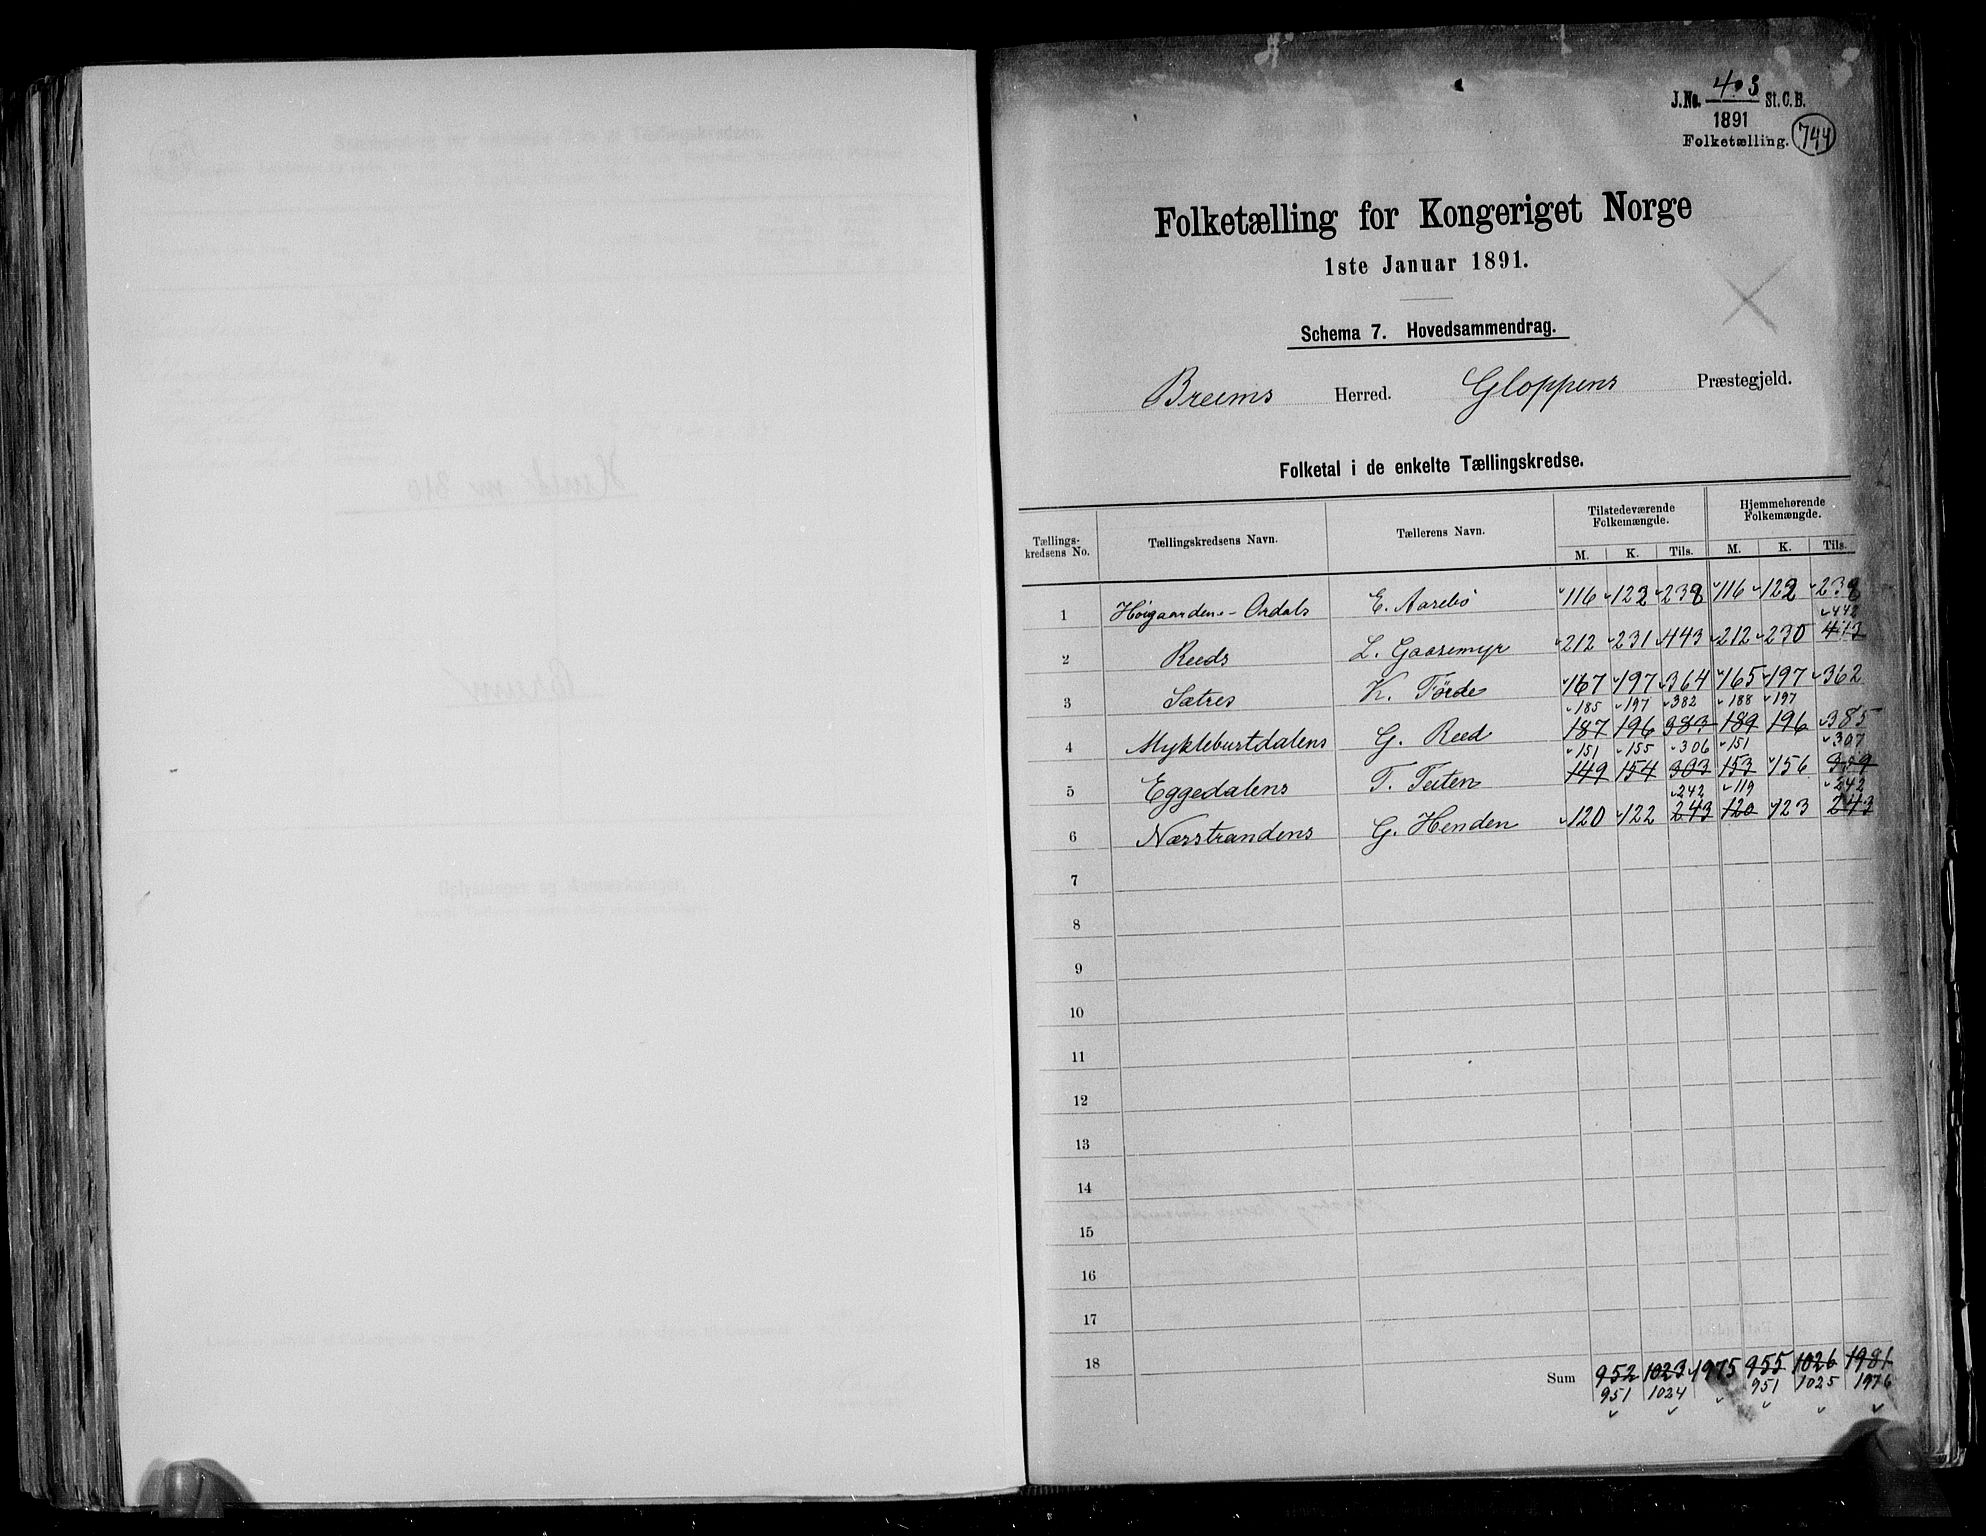 J.No. 403 St. C. B.
1891
Folketælling. 744
Folketælling for Kongeriget Norge
1ste Januar 1891.
Schema 7. Hovedsammendrag.
Breims Herred. Gloppens Præstegjeld.
Folketal i de enkelte Tællingskredse.
Tællings-kredsens No. Tællingskredsens Navn. Tællerens Navn. Tilstedeværende Folkemængde. Hjemmehørende Folkemængde.
M. K. Tils. M. K. Tils.
1 Høigaardene-Ordals E. Aarebö 116 122 238 116 122 238
442
2 Reeds L. Gaasemyr 212 231 443 212 230 443
3 Sætres K. Förde 167 197 364 165 197 362
185 197 382 188 197
4 Myklebustdalens G. Reed 187 196 383 189 196 385
151 155 306 151 307
5 Eggedalens T. Teiten 149 154 303 153 156 309
242 119 242
6 Nærstrandens G. Henden 120 122 243 120 123 243
7
8
9
10
11
12
13
14
15
16
17
18
Sum 952 1023 1975 955 1026 1981
951 1024 951 1025 1976